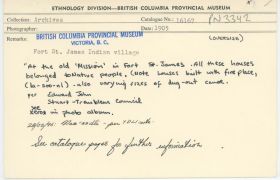 ETHNOLOGY DIVISION—BRITISH COLUMBIA PROVINCIAL MUSEUM
Collection: Archives Catalogue No.: 16167 PN 3342
BRITISH COLUMBIA PROVINCIAL MUSEUM
VICTORIA, B. C.
Date: 1905
(OVERSIZE)
Remarks:
Fort St. James Indian village
"At the old 'Missions' in Fort St. James. All these houses
belonged to Native people. (note houses built with fire place,
also varying sizes of dug-out canoe.
per Edward John
Stuart-Trembleur Council
see xerox in photo album.
See catalogue pages for further information.